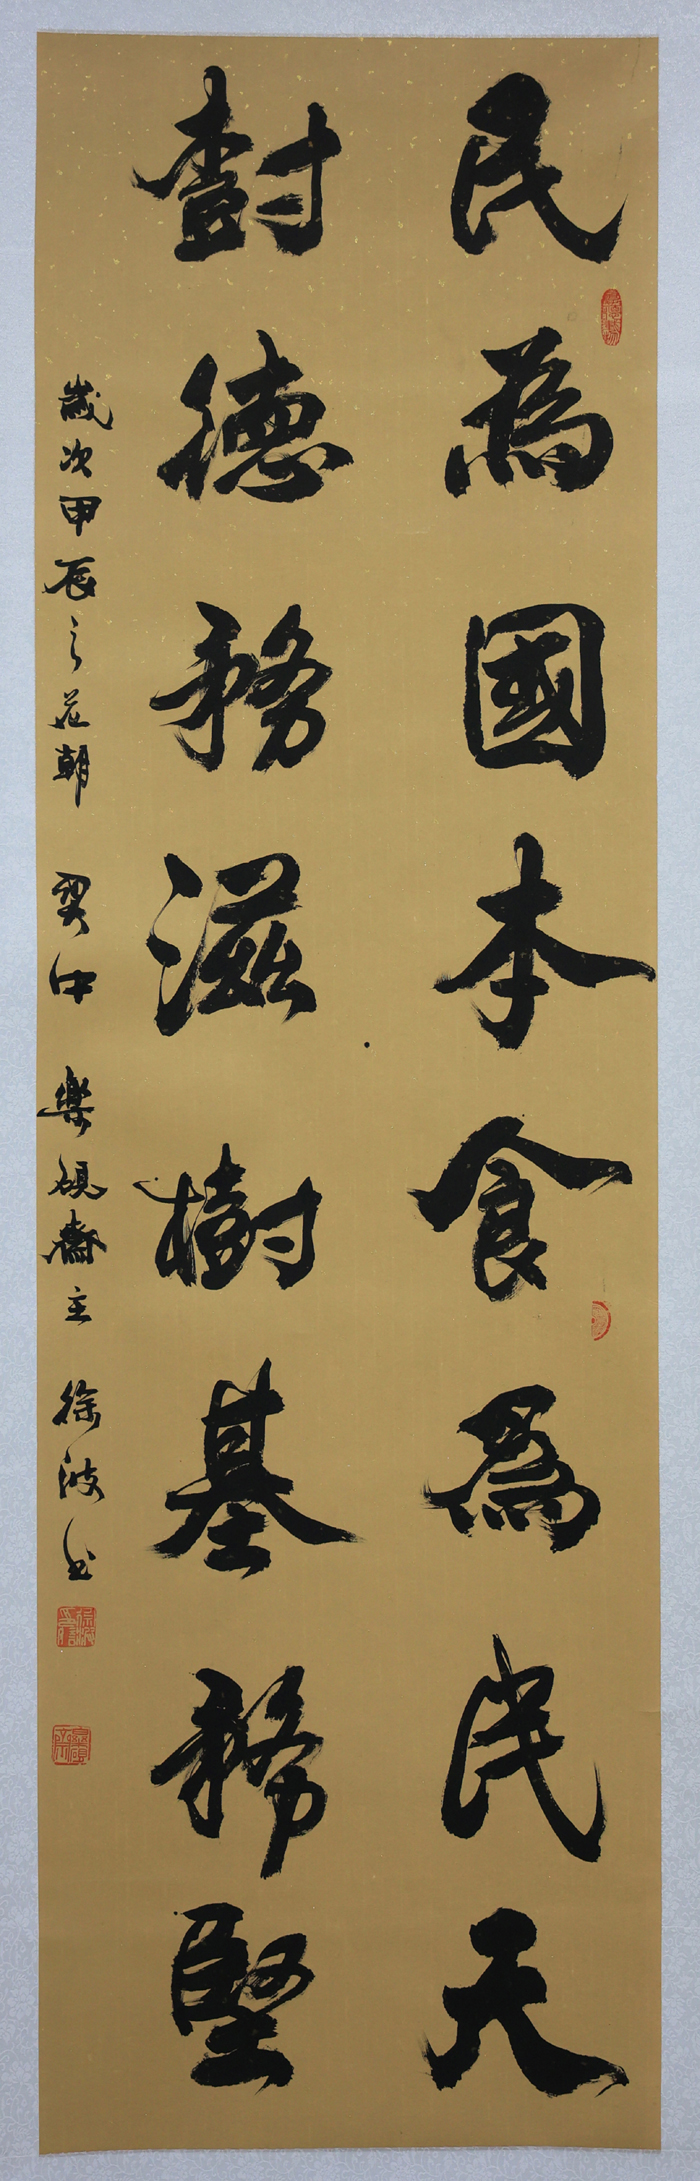 民為國本食為民天
樹德務滋樹基務堅
歲次甲辰之花朝 關中 樂硯齋主 徐波書